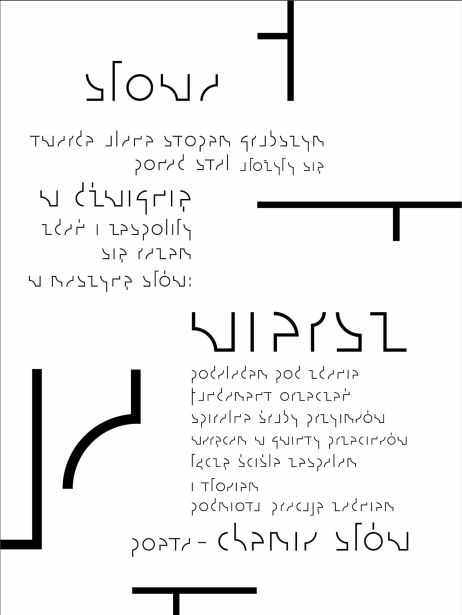 słowa
twarde ulane stopem grubszym
ponad stal ułożyły się
w dźwignię
zdań i zespoliły
się razem
w maszynę słów:
wiersz
podkładam pod zdania
fundament orzeczeń
śruby przyimków
wkręcam w gwinty przecinków
łączę ściśle zespalam
i
podmiotu pracuję
poeta – chemik słów